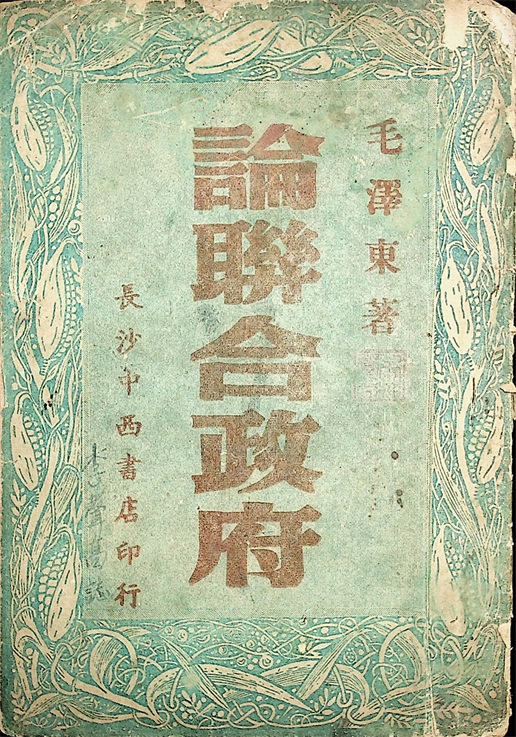 毛澤東著
論聯合政府
長沙中西書店印行